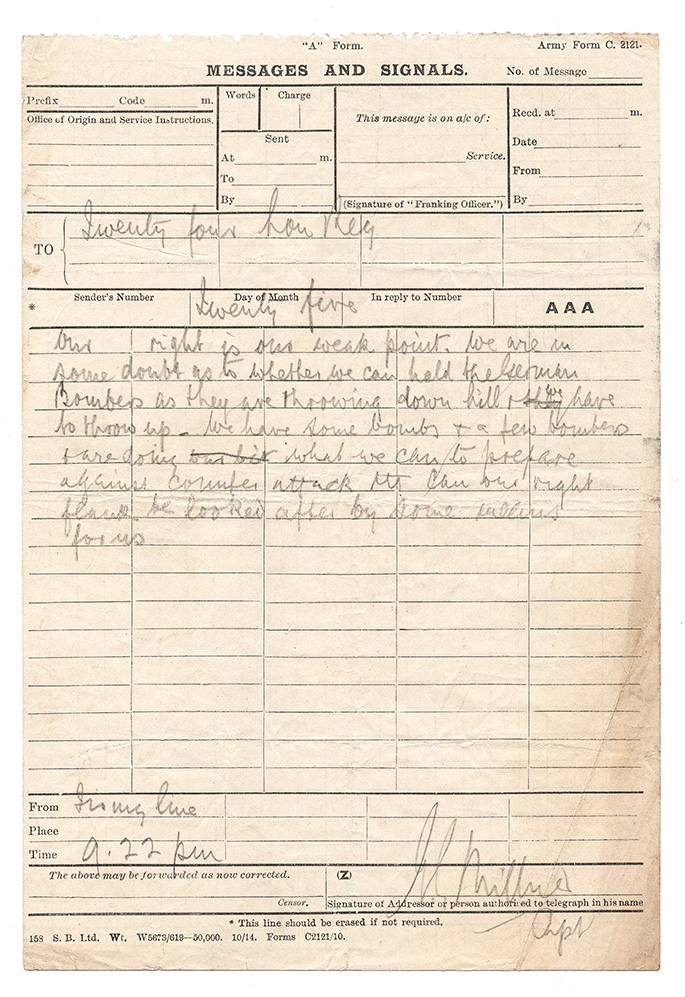 "A" Form.
Army Form C. 2121.
MESSAGES AND SIGNALS.
No. of Message
Prefix Code m.
Words Charge
This message is on a/c of:
Recd. at m.
Office of Origin and Service Instructions.
Sent
Date
At m.
Service.
From
To
By
(Signature of "Franking Officer.")
By
TO
Twenty four Lon Reg
Sender's Number
Day of Month
In reply to Number
AAA
*
Twenty five
Our right is our weak point. We are in
some doubt as to whether we can hold the German
Bombers as they are throwing down hill & they we have
to throw up - We have some bombs & a few bombers
& are doing our bit what we can to prepare
against counter attack Can our right
flank be looked after by some
for us
From line
Place
Time 9.22 pm
The above may be forwarded as now corrected.
(Z)
Censor.
Signature of Addressor or person authorised to telegraph in his name
Capt
* This line should be erased if not required.
158 S. B. Ltd. Wt. W5673/619—50,000. 10/14. Forms C2121/10.